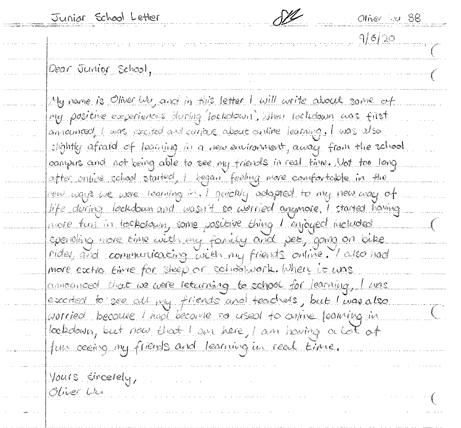 Junior School Letter Oliver Wu 8B
9/6/20
Dear Junior School,
My name is Oliver Wu, and in this letter I will write about some of
my positive experiences during 'lockdown'. When lockdown was first
announced, I was excited and curious about online learning. I was also
slightly afraid of learning in a new environment, away from the school
campus and not being able to see my friends in real time. Not too long
after online school started, I began feeling more comfortable in the
new ways we were learning in. I quickly adapted to my new way of
life during lockdown and wasn't so worried anymore. I started having
more fun in lockdown, some positive thing I enjoyed included
spending more time with my family and pet, going on bike
rides, and communicating with my friends online. I also had
more extra time for sleep or schoolwork. When it was
announced that we were returning to school for learning, I was
excited to see all my friends and teachers, but I was also
worried because I had become so used to online learning in
lockdown, but now that I am here, I am having a lot of
fun seeing my friends and learning in real time.
Yours sincerely,
Oliver Wu